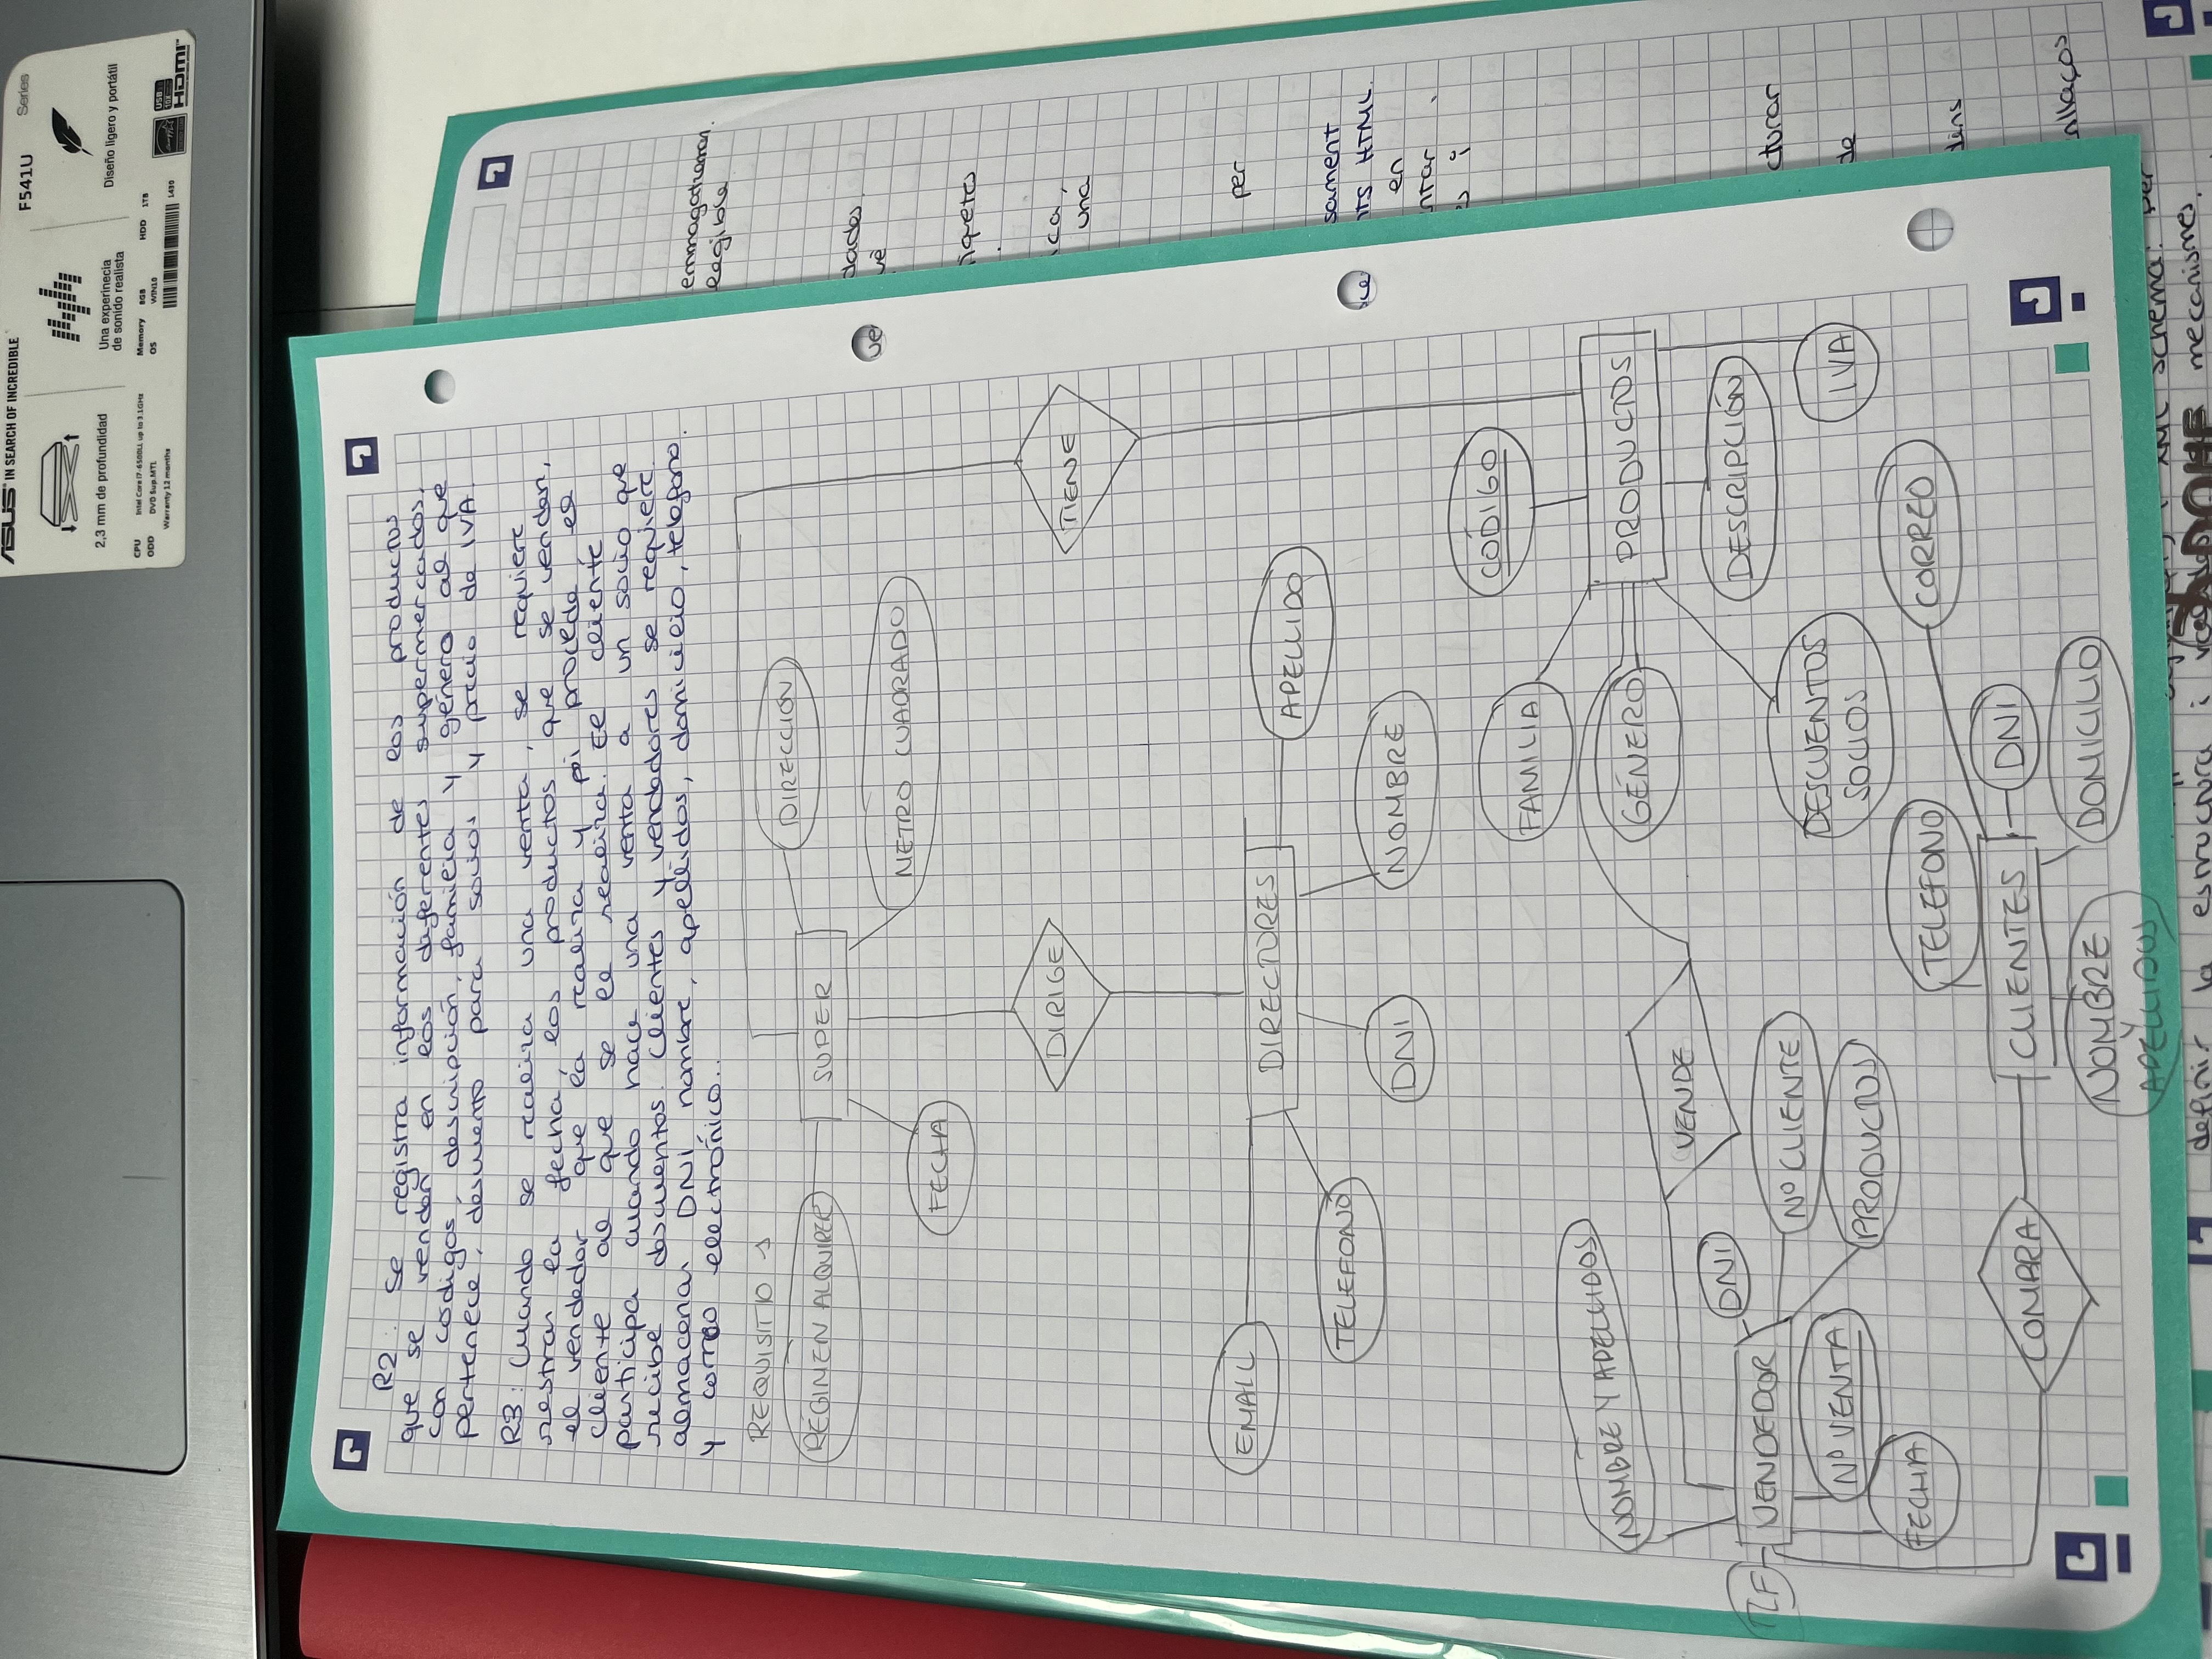 ASUS IN SEARCH OF INCREDIBLE
F541U Series
2,3 mm de profundidad
Una experinecia
de sonido realista
Diseño ligero y portátil
CPU Intel Core i7-6500LL up to 3.1GHz Memory 8GB HDD 1TB
ODD DVD Sup.MTL OS WIN10
Warranty 12 months
L430
HDMI
R2: Se registra información de los productos
que se venden en los diferentes supermercados,
con códigos, descripción, familia y género al que
pertenece, descuento para socios y precio de IVA
R3: Cuando se realiza una venta, se requiere
restrar la fecha, los productos que se venden,
el vendedor que la realiza y procede, el
cliente al que se le realiza. El cliente
participa cuando hace una venta a un socio que
recibe descuentos. Clientes y vendedores se requiere
almacenar DNI, nombre, apellidos, domicilio, telefono
y correo electrónico..
REQUISITIO 1
REGIMEN ALQUIRER
SUPER
DIRECCION
METRO CUADRADO
FECHA
DIRIGE
TIENE
EMAIL
DIRECTORES
APELLIDO
TELEFONO
DNI
NOMBRE
CODIGO
FAMILIA
NOMBRE Y APELLIDOS
GÉNERO
PRODUCTOS
VENDE
DNI
TLF
VENDEDOR
Nº CLIENTE
DESCRIPCIÓN
Nº VENTA
PRODUCTOS
DESCUENTOS
SOCIOS
IVA
FECHA
TELEFONO
CORREO
COMPRA
CLIENTES
DNI
NOMBRE
Y
APELLIDOS
DOMICILIO
emmagatzeman.
legible
dades
ue
iquets
ica,
una
per
sament
nts HTML.
en
ntar
i
cturar
de
dins
nllaços
XML Schema: Per
definir la estructura i mecanismes.